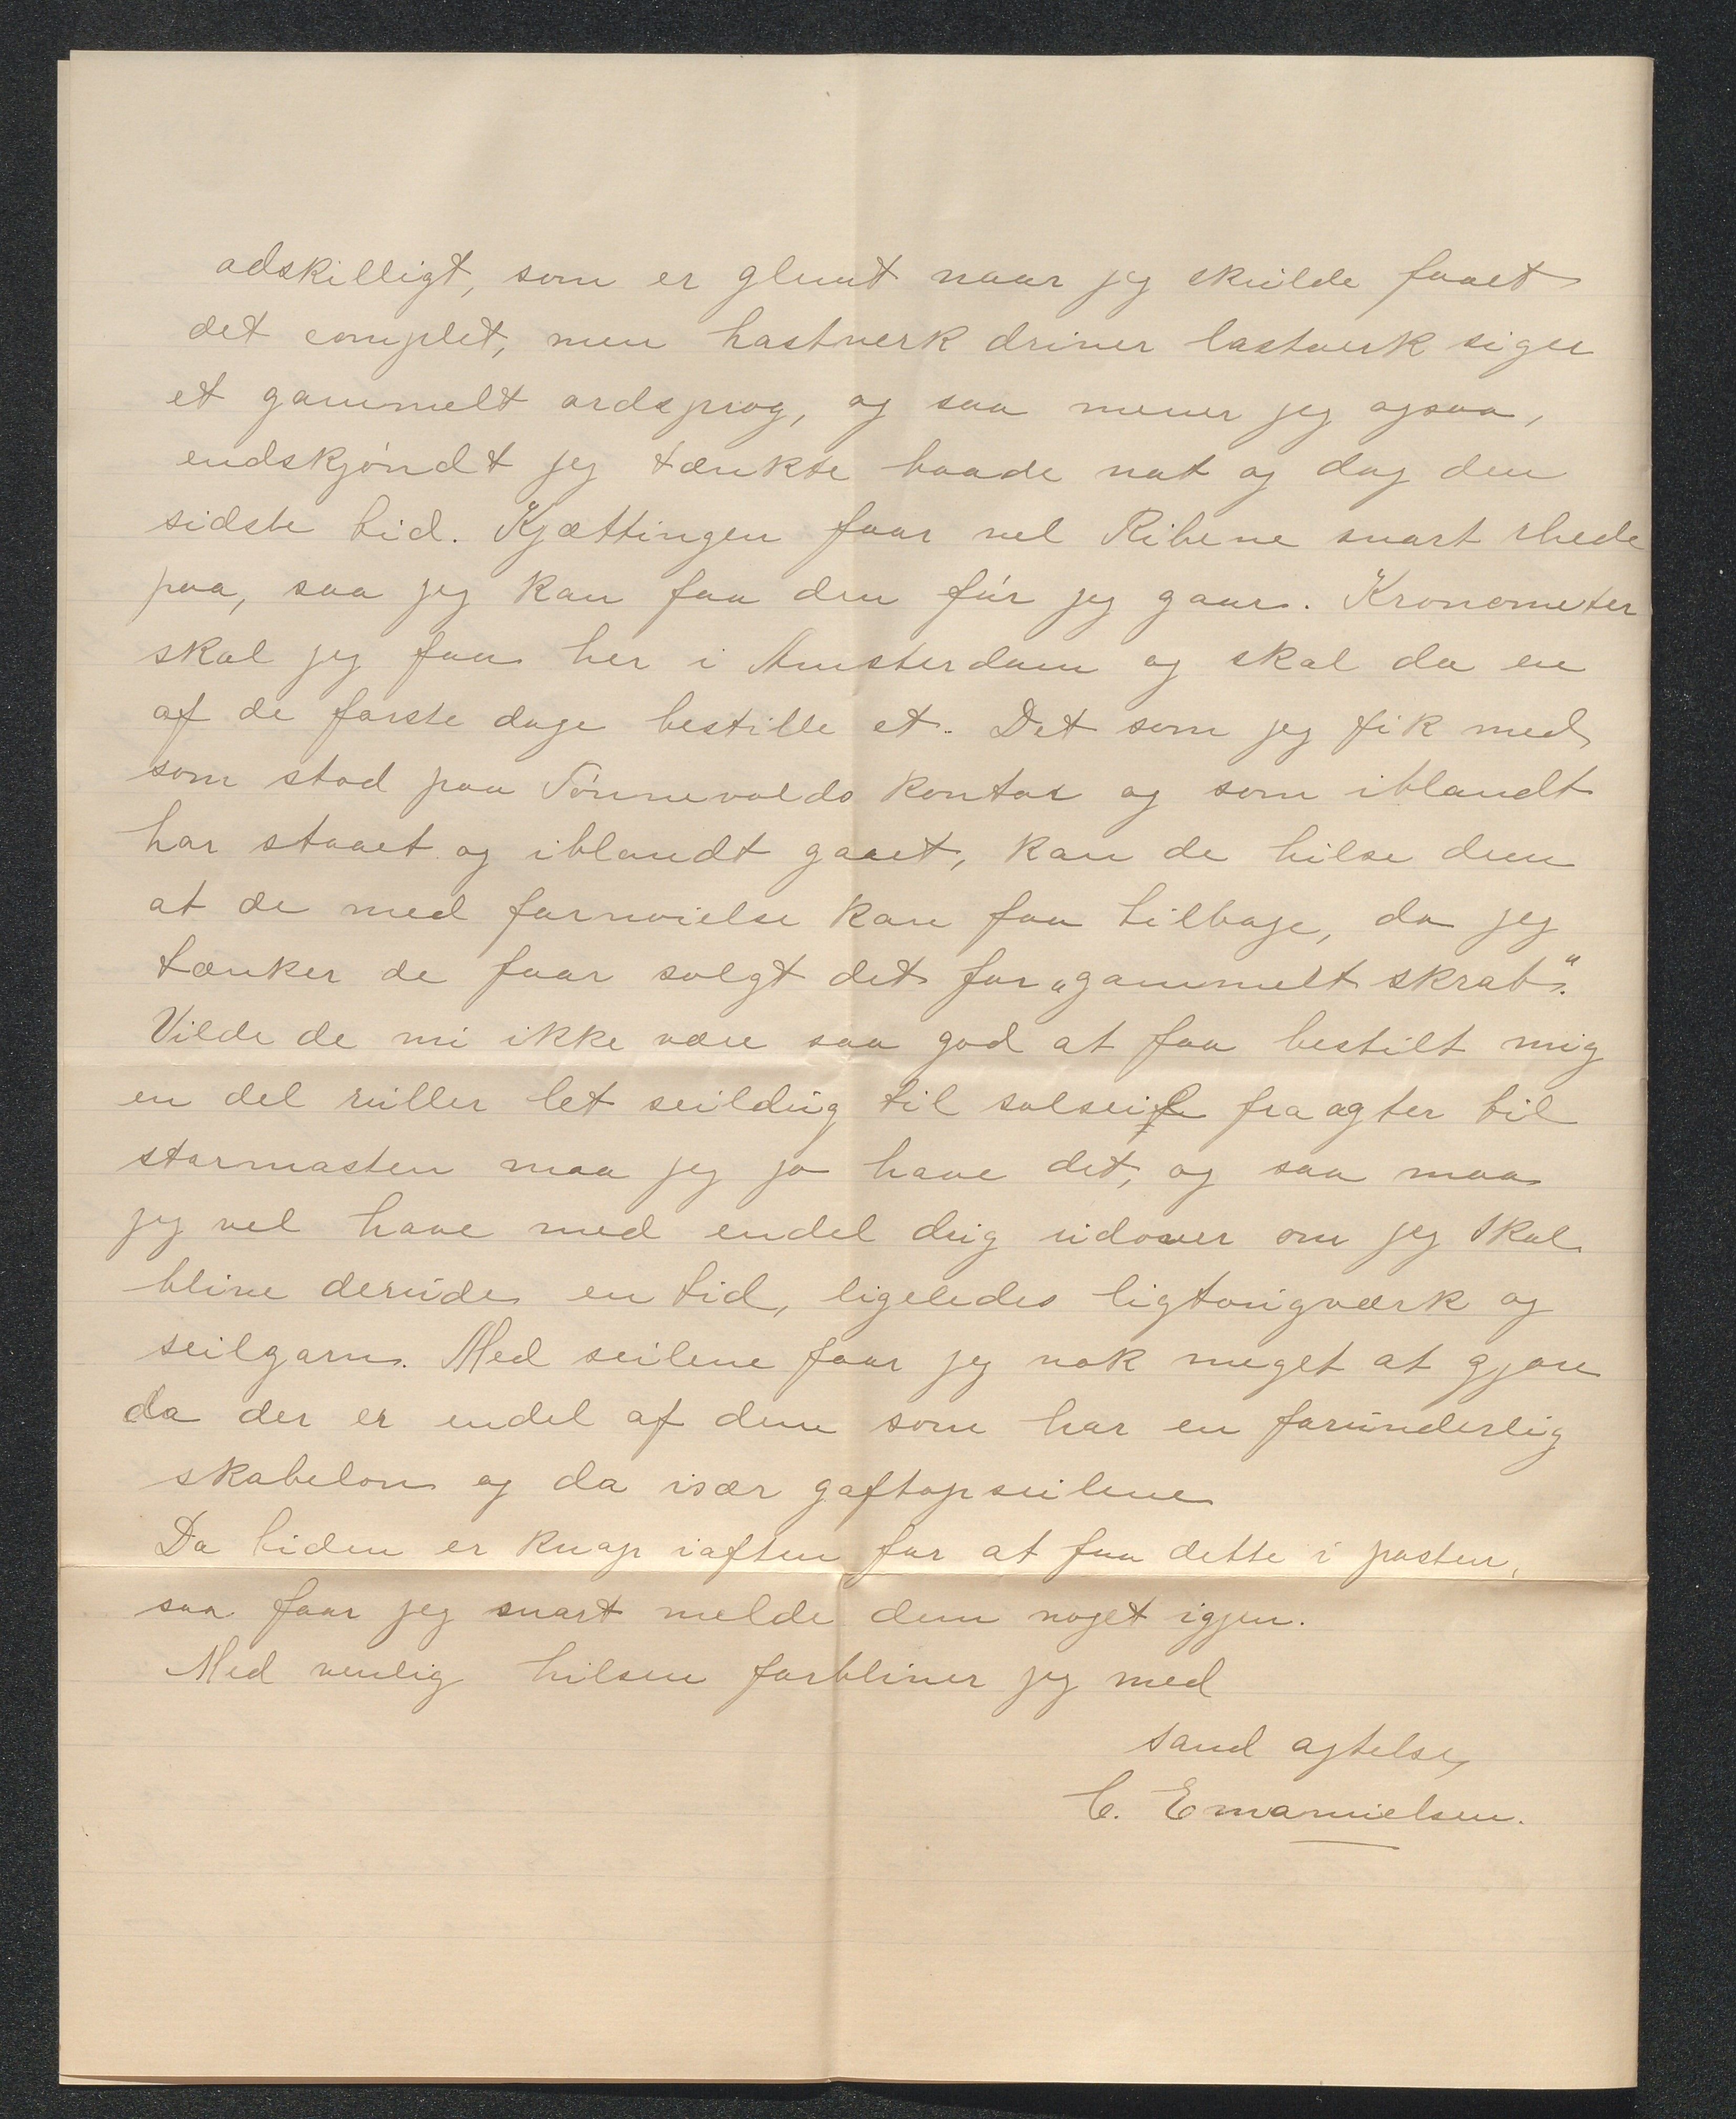 adskilligt, som er glemt naar jeg skulde faaet
det complet, men hastverk driver lastverk siger
et gammelt ordsprog, og saa mener jeg ogsaa,
endskjøndt jeg tænkte baade nat og dag den
sidste tid. Kjættingen faar vel Ribene snart rhede
paa, saa jeg kan faa den før jeg gaar. Kronometer
skal jeg faa her i Amsterdam og skal da en
af de første dage bestille et. Det som jeg fik med
som stod paa Sønnevolds kontor og som iblandt
har staaet og iblandt gaaet, kan de hilse dem
at de med fornøielse kan faa tilbage, da jeg
tænker de faar solgt det for „gammelt skrab".
Vilde de nu ikke være saa god at faa bestilt mig
en del ruller let seildug til solseil fra agter til
stormasten maa jeg jo have det, og saa maa
jeg vel have med endel dug udover om jeg skal
blive derude en tid, ligeledes ligtougværk og
seilgarn. Med seilene faar jeg nok meget at gjøre
da der er endel af dem som har en forunderlig
skabelon og da især gaftopseilene
Da tiden er knap iaften for at faa dette i posten,
saa faar jeg snart melde dem noget igjen.
Med venlig hilsen forbliver jeg med
sand agtelse,
C. Emanuelsen.